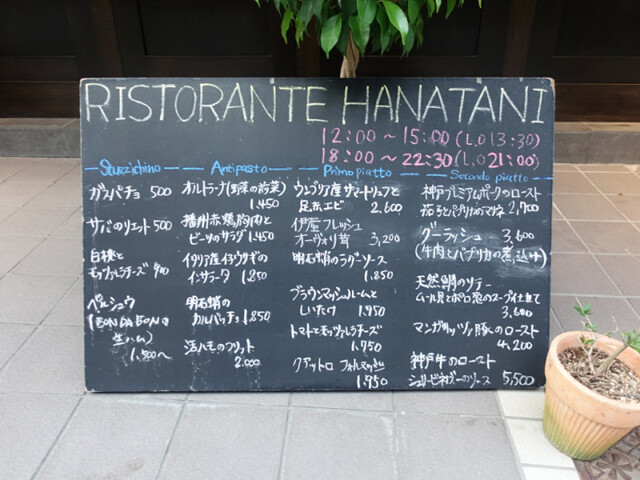 RISTORANTE HANATANI
12:00～15:00(L.O 13:30)
18:00～22:30(L.O 21:00)
Stuzzichino
ガスパチョ 500
サバのリエット 500
白桃と
モッツァレラチーズ 900
ペルシュウ
生ハム)
1,500〜
Antipasto
オルトラーナ(野菜の前菜)
1,450
播州赤鶏胸肉と
ビーツのサラダ 1,450
イタリア産イチジクの
インサラータ 1,250
明石蛸の
カルパッチョ 1,850
活ハモのフリット
2,000
Primo piatto
ウンブリア産サマートリュフと
足赤エビ 2,600
伊産フレッシュ
オーヴォリ茸 3,200
明石蛸のラグーソース
1,850
ブラウンマッシュルームと
しいたけ 1,950
トマトとモッツァレラチーズ
1,950
クアットロ フォルマッジ
1,950
Secondo piatto
神戸プレミアムポークのロースト
2,700
グーラッシュ 3,600
(牛肉とパプリカの煮込み)
天然鯛のソテー
ムール貝とポロ葱のスープ仕立て
3,600
マンガリッツァ豚のロースト
4,200
神戸牛のロースト
5,500